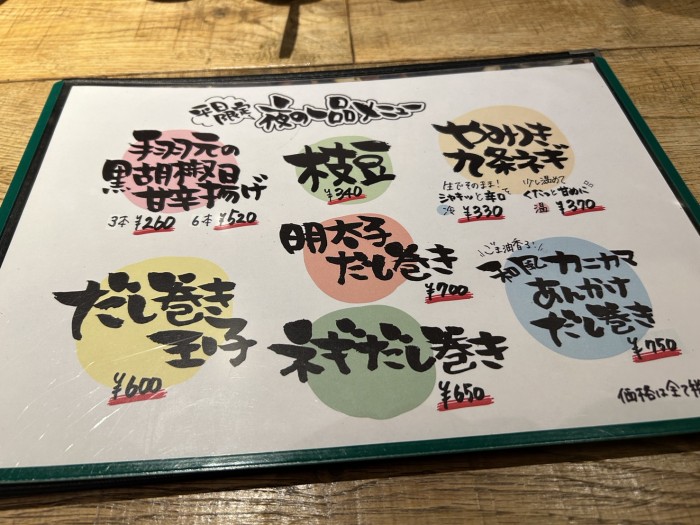 平日限定 夜の一品メニュー
手羽元の
黒胡椒
甘辛揚げ
3本 ¥260 6本 ¥520
枝豆
¥340
やみつき
九条ネギ
生でそのまま!
シャキッと辛口
冷 ¥330
少し温めて
くたっと甘めに
温 ¥370
明太子
だし巻き
¥700
だし巻き
玉子
¥600
ネギだし巻き
¥650
ごま油香る!
和風カニカマ
あんかけ
だし巻き
¥750
価格は全て